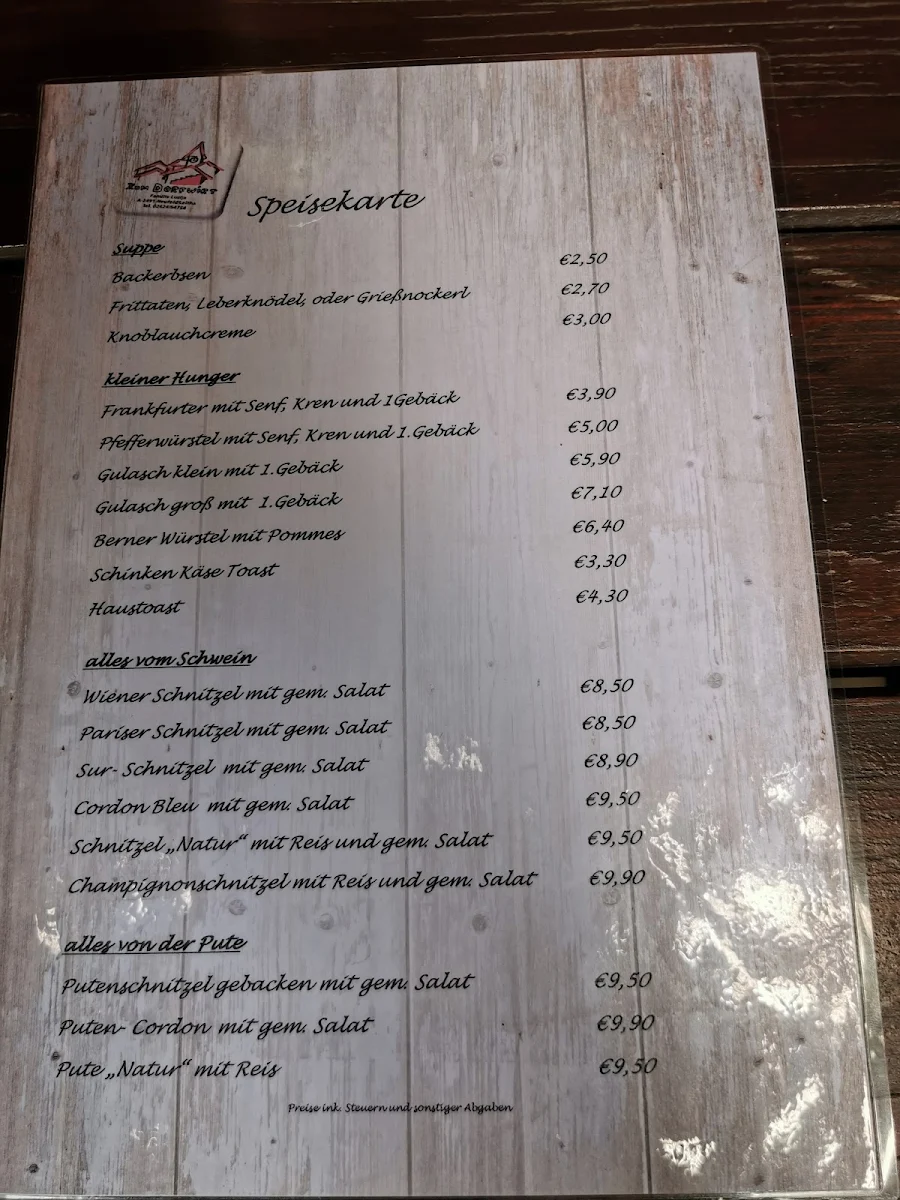 Zum Dorfwirt
Speisekarte
Suppe
Backerbsen €2,50
Frittaten, Leberknödel, oder Grießnockerl €2,70
Knoblauchcreme €3,00
kleiner Hunger
Frankfurter mit Senf, Kren und 1Gebäck €3,90
Pfefferwürstel mit Senf, Kren und 1.Gebäck €5,00
Gulasch klein mit 1.Gebäck €5,90
Gulasch groß mit 1.Gebäck €7,10
Berner Würstel mit Pommes €6,40
Schinken Käse Toast €3,30
Haustoast €4,30
alles vom Schwein
Wiener Schnitzel mit gem. Salat €8,50
Pariser Schnitzel mit gem. Salat €8,50
Sur- Schnitzel mit gem. Salat €8,90
Cordon Bleu mit gem. Salat €9,50
Schnitzel „Natur“ mit Reis und gem. Salat €9,50
Champignonschnitzel mit Reis und gem. Salat €9,90
alles von der Pute
Putenschnitzel gebacken mit gem. Salat €9,50
Puten- Cordon mit gem. Salat €9,90
Pute „Natur“ mit Reis €9,50
Preise ink. Steuern und sonstiger Abgaben